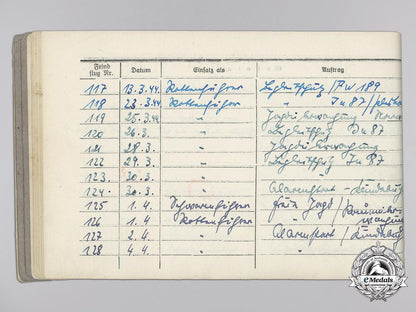 Feind
flug Nr. Datum Einsatz als Auftrag
117 13.3.44. Rottenführer Begleitschutz / FW 189
118 23.3.44. Rottenführer " Ju 87 /
119 25.3.44 " Jagdüberwachung
120 26.3. " Begleitschtz. Ju 87
121 28.3. " Jagdüberwachung
122 29.3. " Begleitschtz. Ju 87
123 30.3. "
124. 30.3. " Alarmstart -
125 1.4. Schwarmführer freie Jagd /
126 1.4. Rottenführer "
127 2.4. " Alarmstart /
128 4.4. "
eMedals